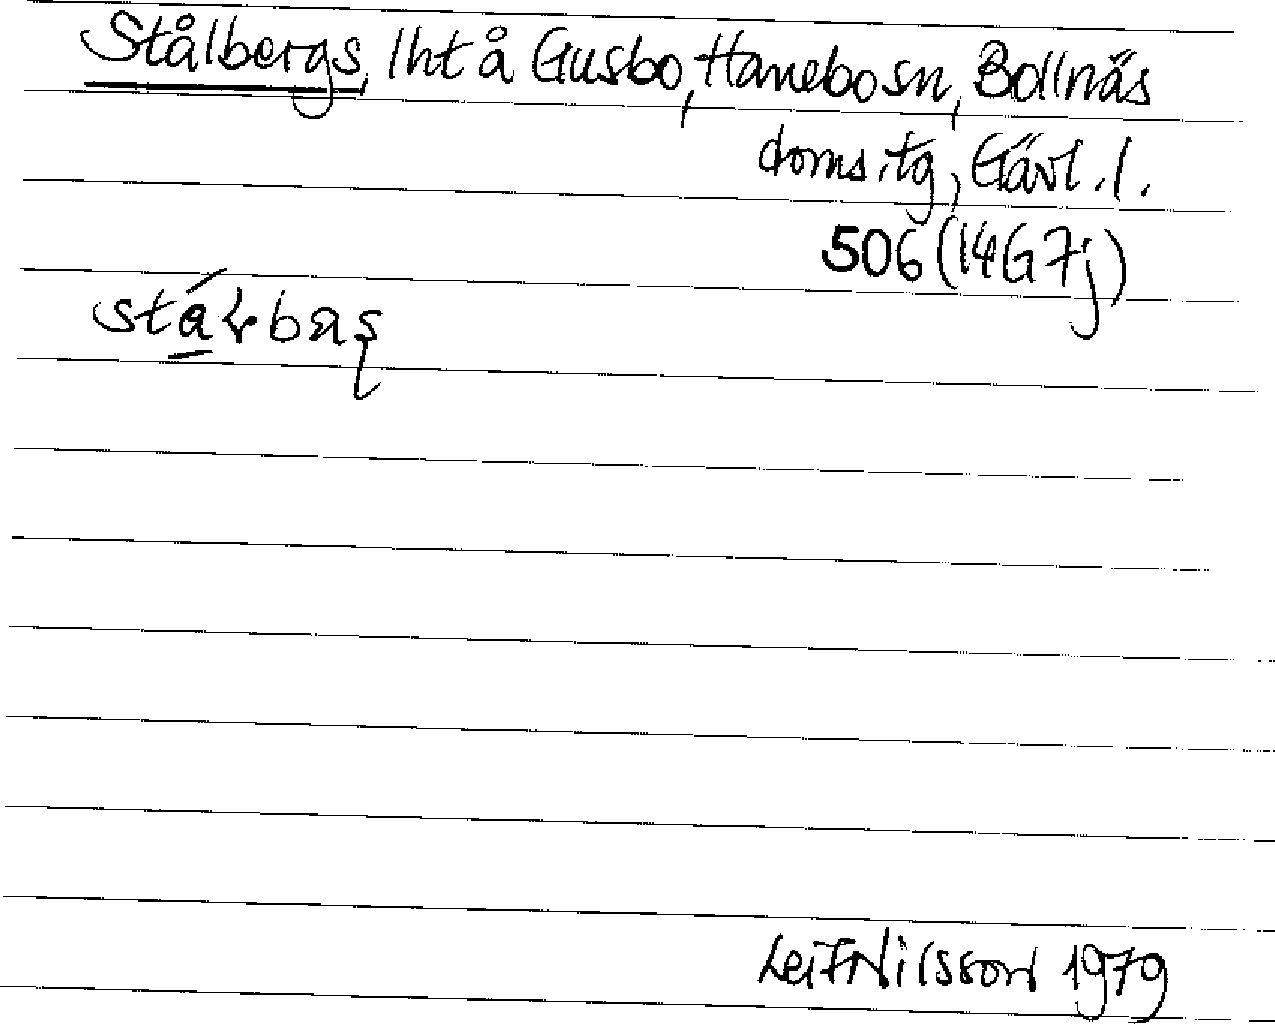 Stålbergs, lht å Gusbo, Hanebo sn, Bollnäs
doms.tg, Gävl.l.
506 (14G7j)
Leif Nilsson 1979